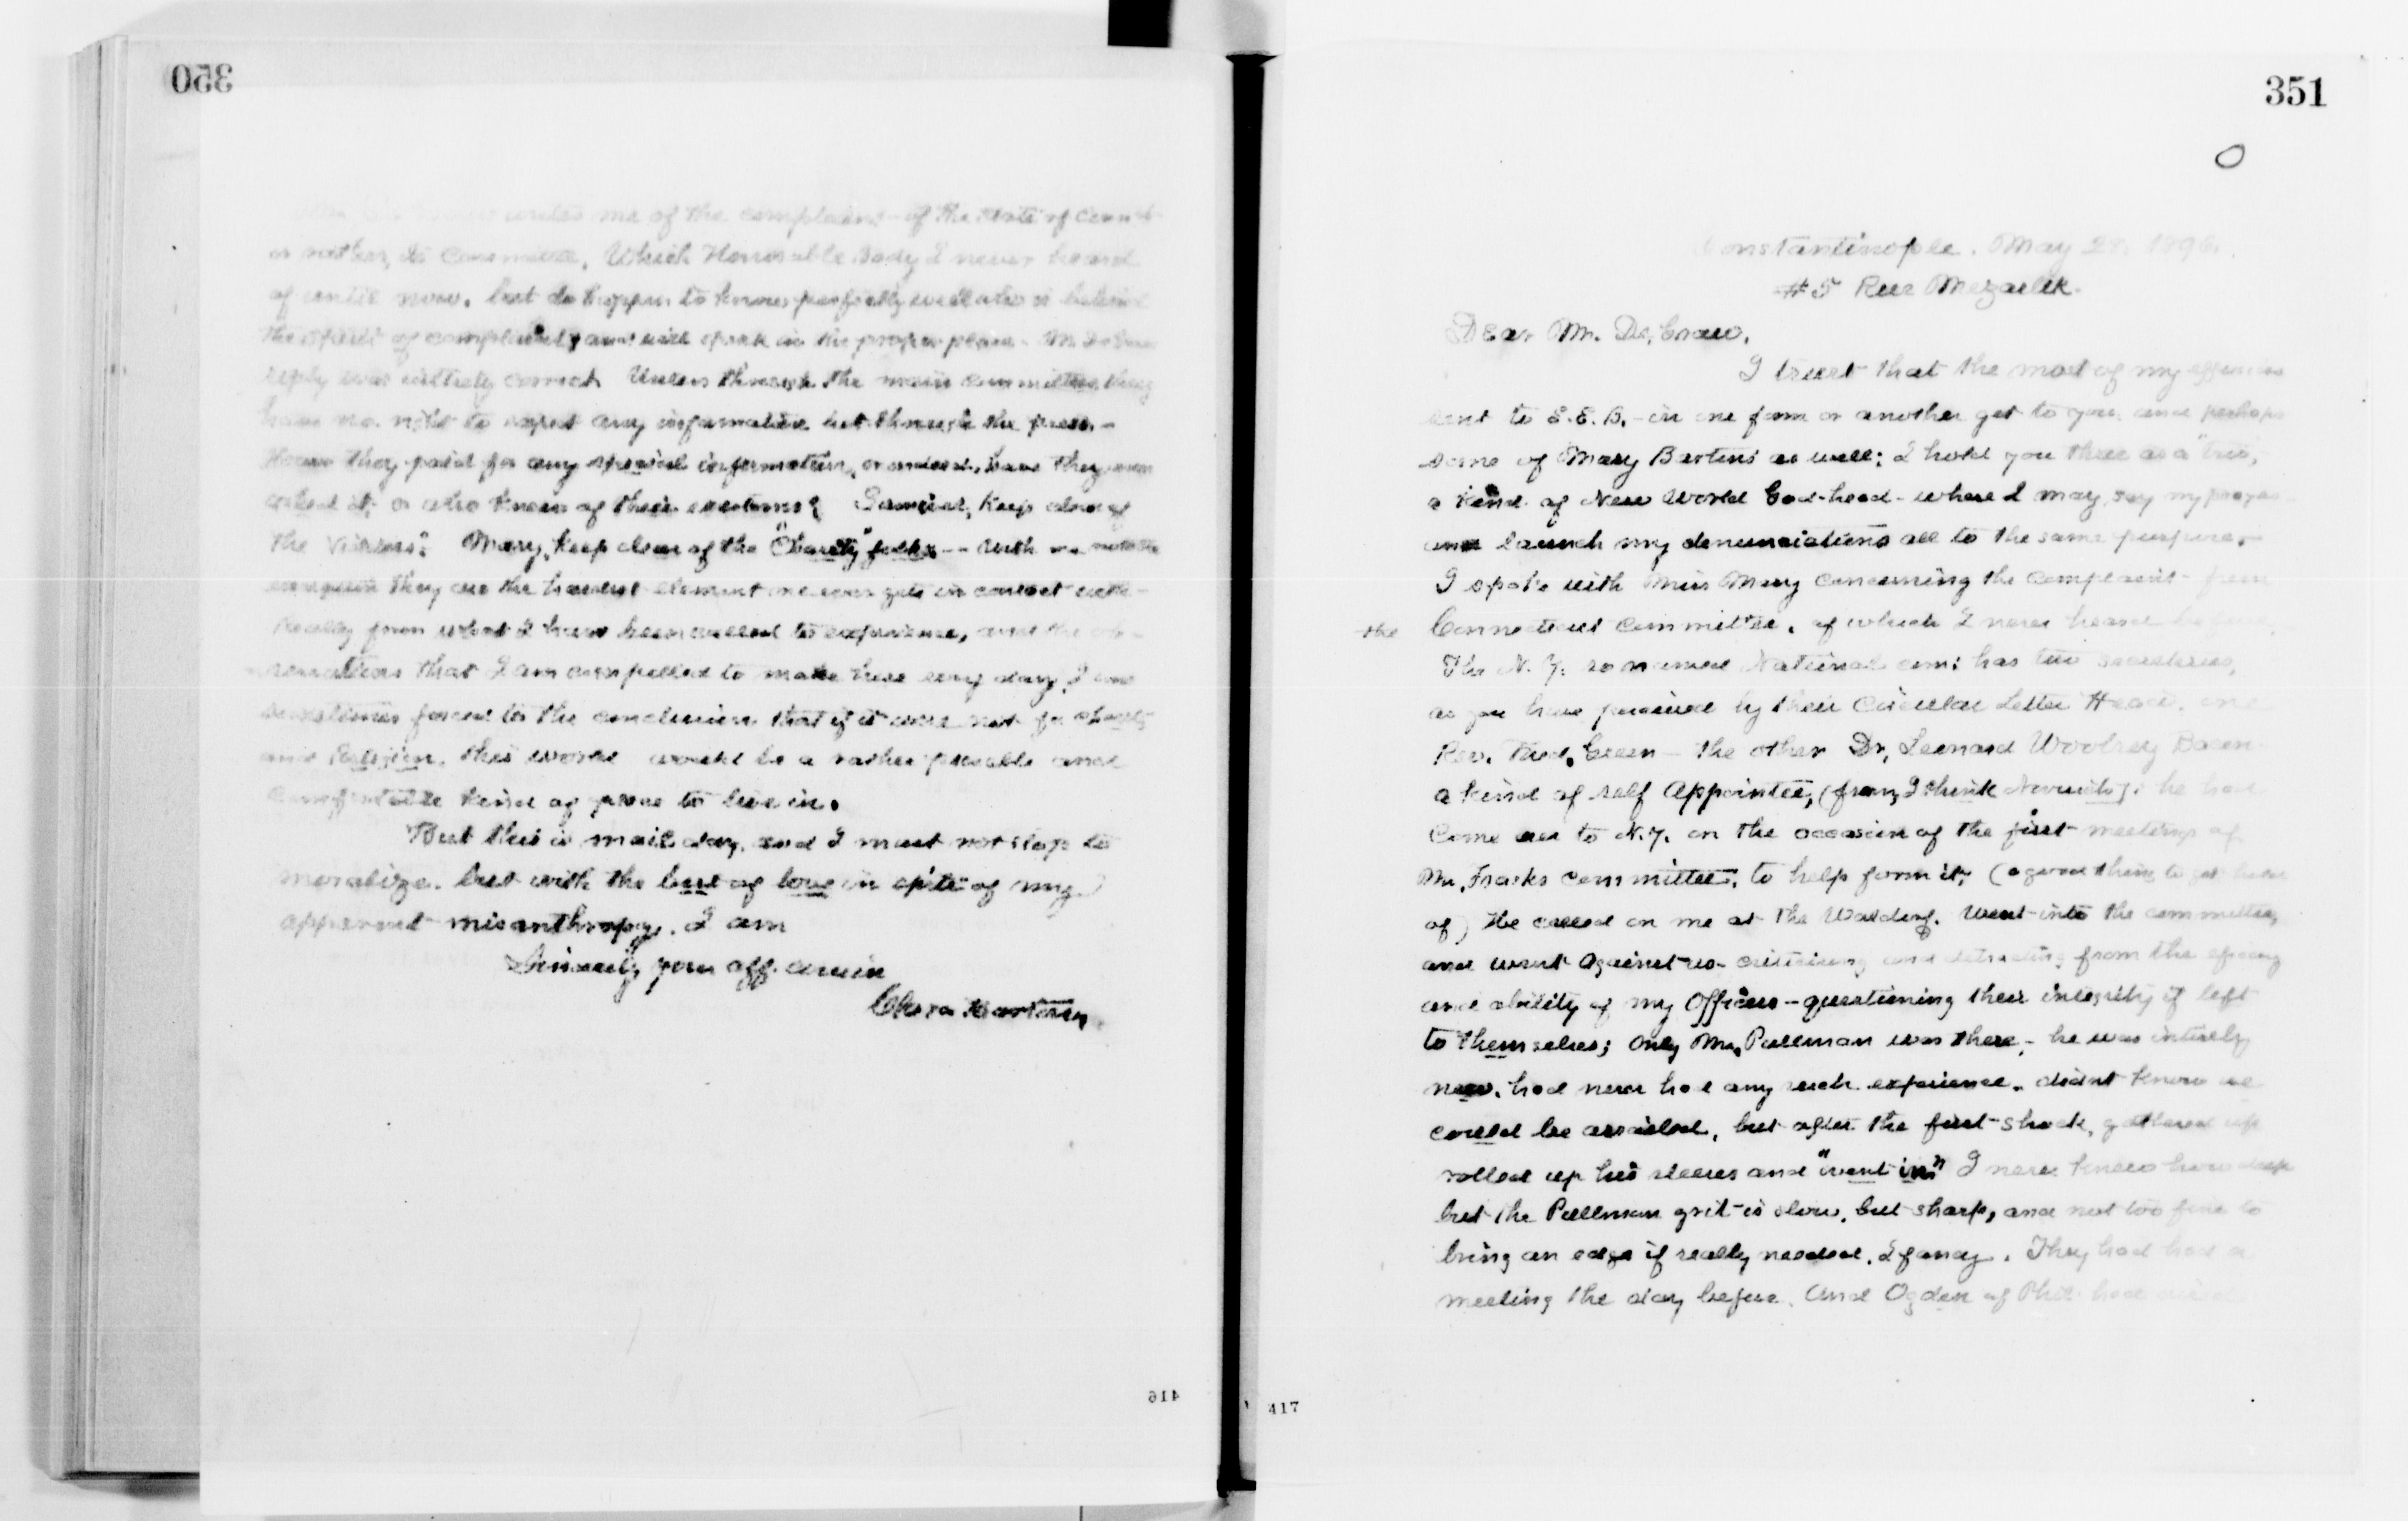 350
writes me of the complaint - of the State of Connct
or rather, its Committee, Which Honorable Body I never heard
of until now, but do happen to know perfectly well who is behind
the spirit of complaint, and will speak in the proper place - Mr. De Graw
reply was entirely correct. Unless through the main committee they
have no right to expect any information but through the press. -
Have they paid for any special information, or indeed, have they even
asked it, or who knows of their existence? keep clear of
the Visitors". Mary, keep clear of the "Charity" folks - - with
exception they are the hardest element one ever gets in contact with -
Really from what I have been called to experience, and the ob-
servations that I am compelled to make here every day, I am
sometimes forced to the conclusion that if it were not for charity
and Religion, this world would be a rather peaceable and
comfortable kind of place to live in.
But this is mail day, and I must not stop to
moralize. but with the best of love in spite of my
apparent misanthropy. I am
Sincerely your aff. cousin
Clara Barton
416
351
Constantinople. May 28. 1896.
# 5 Rue Mezarlik.
Dear Mr. De, Graw.
I trust that the most of my effusions
sent to S. E. B. - in one form or another get to you, and perhaps
some of Mary Bartons' as well; I hold you three as a "trio,
a kind of New World God-head - where I may say my prayers
and launch my denunciations all to the same purpose. -
I spoke with Miss Mary concerning the complaint from
the Connecticut Committee, of which I never heard before.
The N. Y. so named National com: has two secretaries,
as you have perceived by their Circular Letter Head. one
Rev. Fred. Green - the other Dr, Leonard Woolsey Bacon
a kind of self Appointee, (from, I think Norwich); he had
Come over to N. Y. on the occasion of the first meetings of
Mr, committee, to help form it, (a good thing to get hold
of) He called on me at the Waldorf. Went into the committee,
and went against us - criticising and detracting from the efficacy
and ability of my Officers - questioning their integrity if left
to themselves; Only Mr, Pullman was there, - he was entirely
new, had never had any such experience. didnt know we
could be assailed, but after the first shock, gathered up
rolled up his sleeves and "went in" I never knew how deep
but the Pullman grit is slow, but sharp, and not too fine to
bring an edge if really needed, I fancy. They had had a
meeting the day before. And Ogden of Phil. had
417